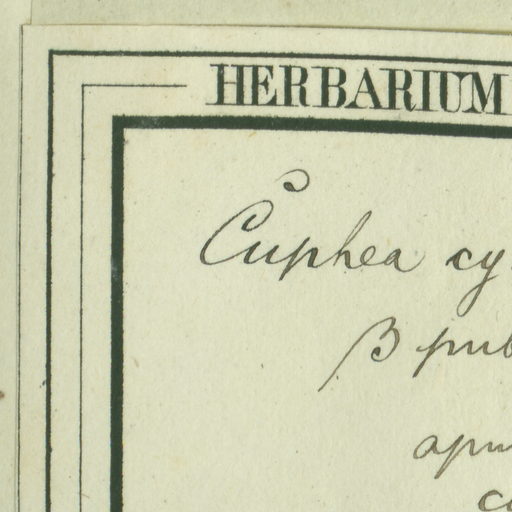 HERBARIUM
Cuphea cy
β pub
apu